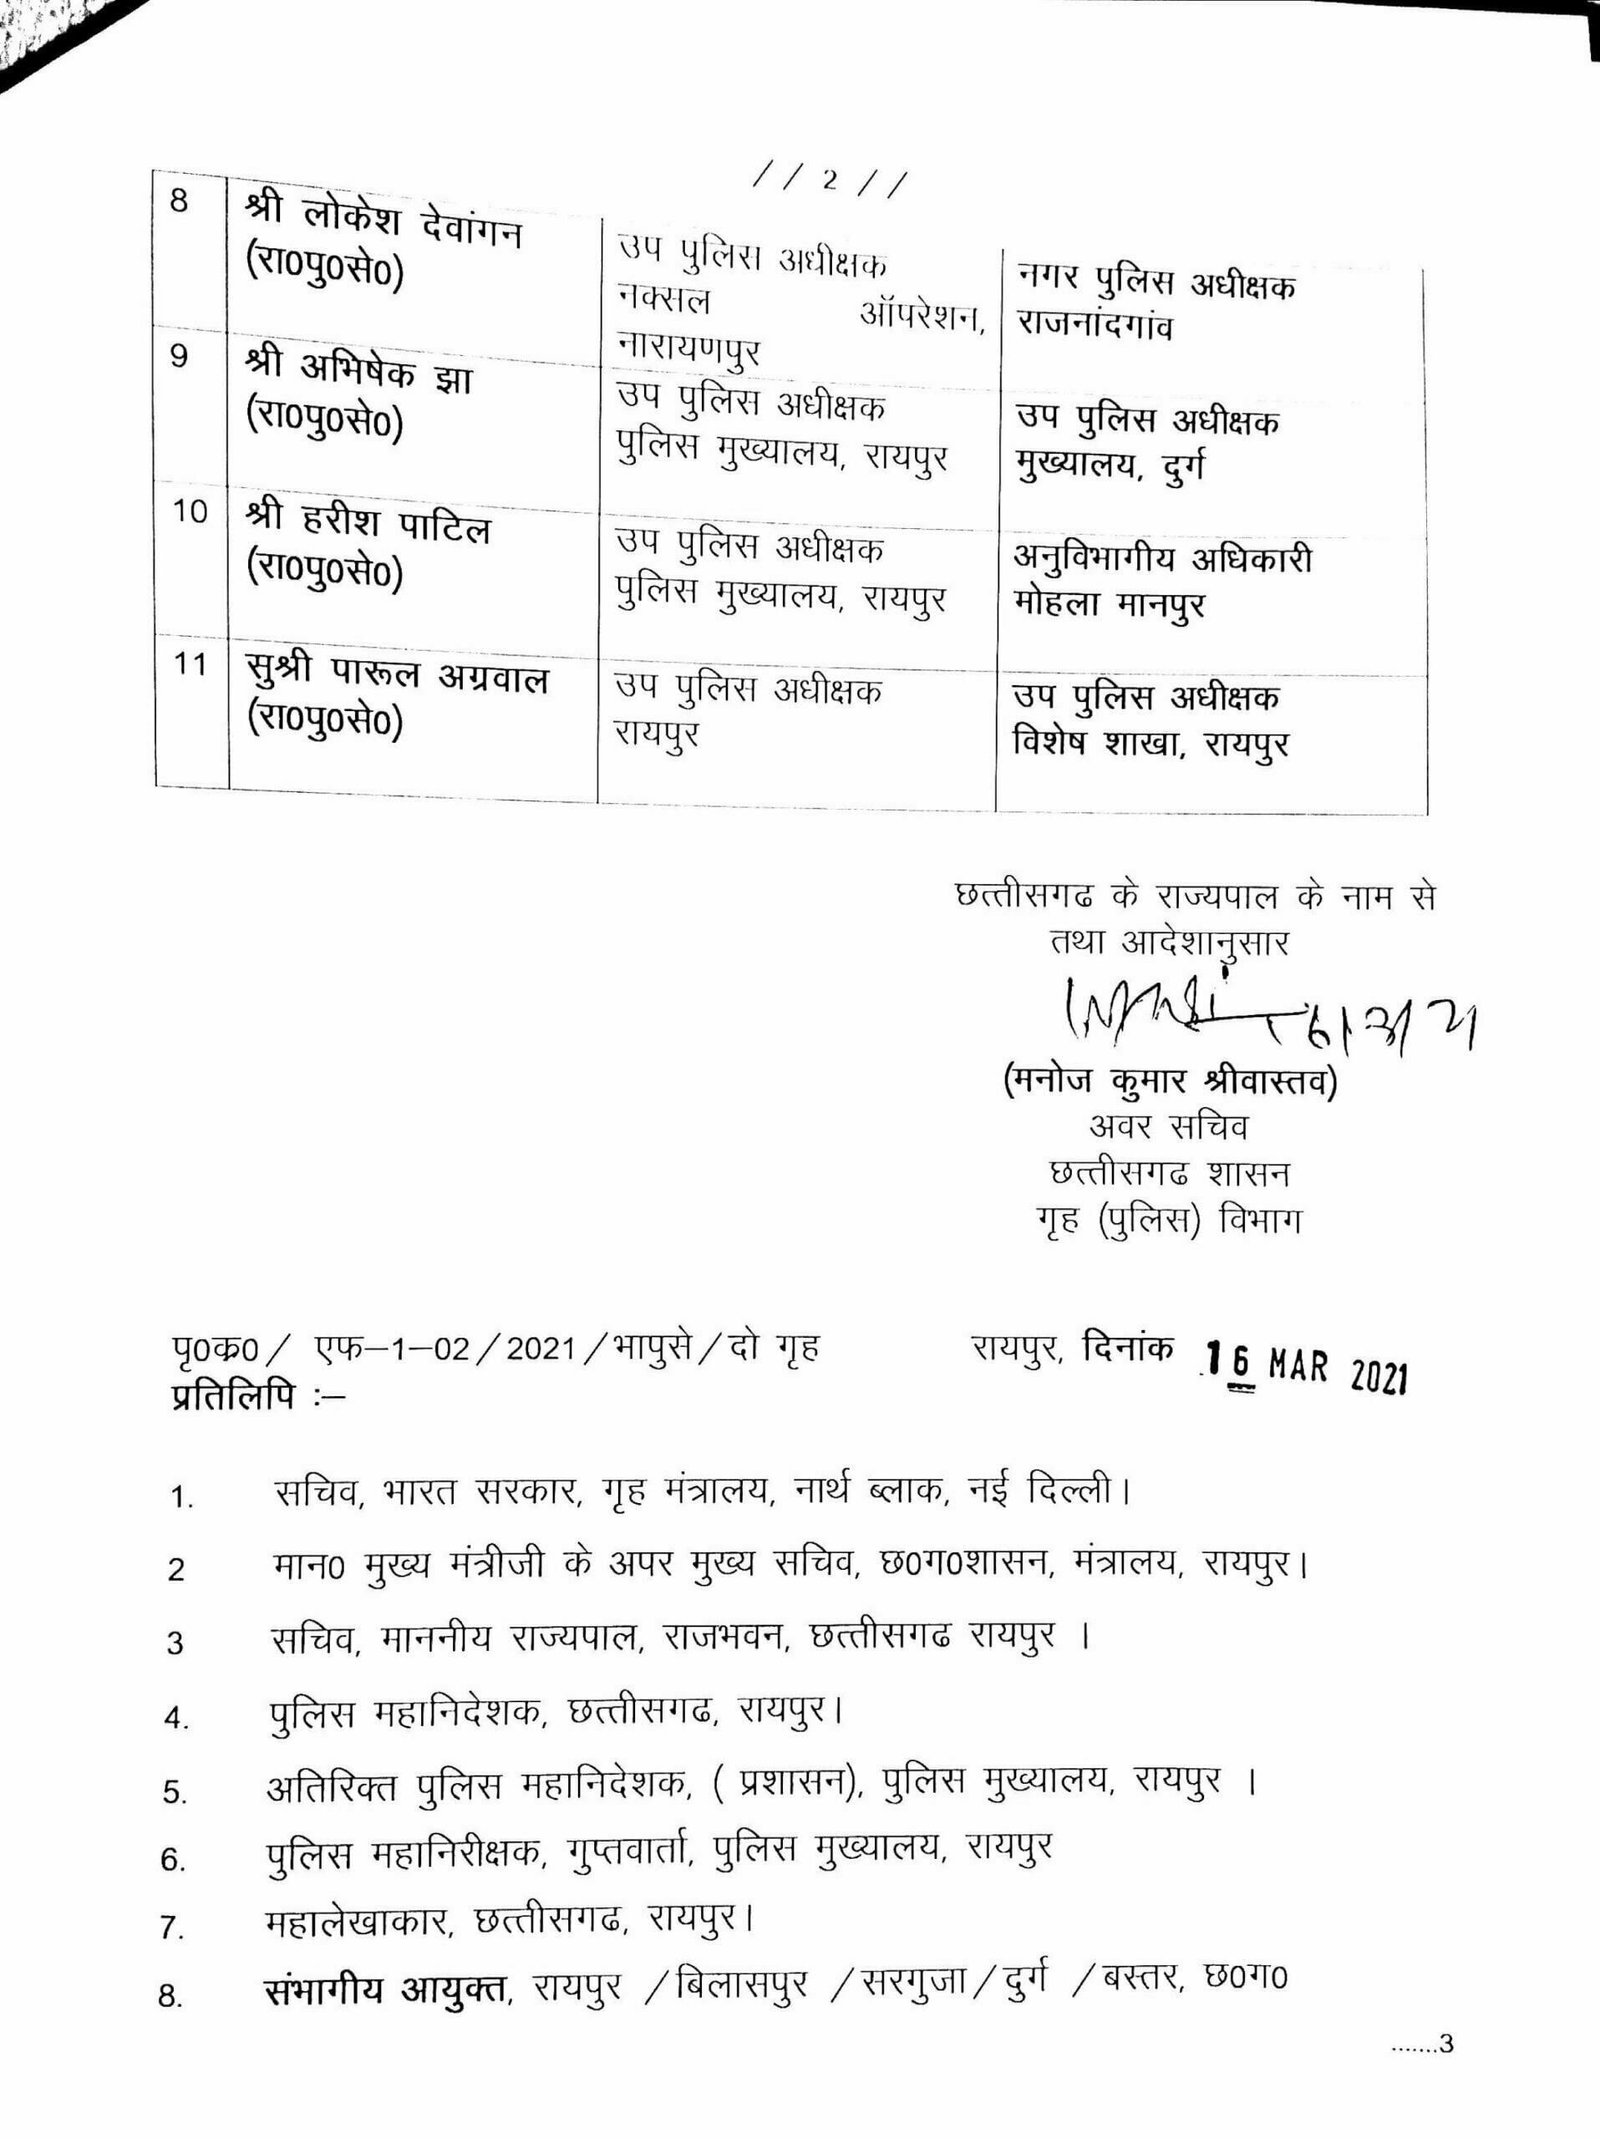 // 2 //
8 श्री लोकेश देवांगन उप पुलिस अधीक्षक नगर पुलिस अधीक्षक
(रा0पु0से0) नक्सल ऑपरेशन, राजनांदगांव
नारायणपुर
9 श्री अभिषेक झा उप पुलिस अधीक्षक उप पुलिस अधीक्षक
(रा0पु0से0) पुलिस मुख्यालय, रायपुर मुख्यालय, दुर्ग
10 श्री हरीश पाटिल उप पुलिस अधीक्षक अनुविभागीय अधिकारी
(रा0पु0से0) पुलिस मुख्यालय, रायपुर मोहला मानपुर
11 सुश्री पारूल अग्रवाल उप पुलिस अधीक्षक उप पुलिस अधीक्षक
(रा0पु0से0) रायपुर विशेष शाखा, रायपुर
छत्तीसगढ के राज्यपाल के नाम से
तथा आदेशानुसार
(मनोज कुमार श्रीवास्तव)
अवर सचिव
छत्तीसगढ शासन
गृह (पुलिस) विभाग
पृ0क0/ एफ–1–02/2021/भापुसे/दो गृह रायपुर, दिनांक 16 MAR 2021
प्रतिलिपि :–
1. सचिव, भारत सरकार, गृह मंत्रालय, नार्थ ब्लाक, नई दिल्ली।
2 मान0 मुख्य मंत्रीजी के अपर मुख्य सचिव, छ0ग0शासन, मंत्रालय, रायपुर।
3 सचिव, माननीय राज्यपाल, राजभवन, छत्तीसगढ रायपुर ।
4. पुलिस महानिदेशक, छत्तीसगढ, रायपुर।
5. अतिरिक्त पुलिस महानिदेशक, ( प्रशासन), पुलिस मुख्यालय, रायपुर ।
6. पुलिस महानिरीक्षक, गुप्तवार्ता, पुलिस मुख्यालय, रायपुर
7. महालेखाकार, छत्तीसगढ, रायपुर।
8. संभागीय आयुक्त, रायपुर /बिलासपुर /सरगुजा/दुर्ग /बस्तर, छ0ग0
.......3